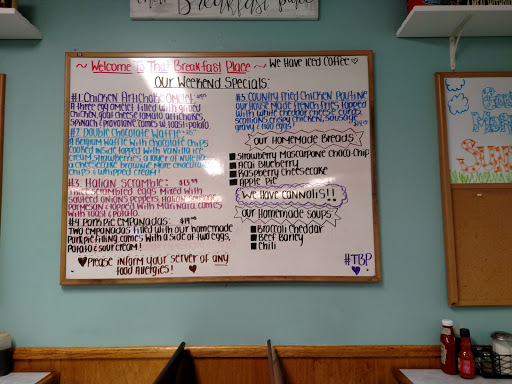 Breakfast
~ Welcome To That Breakfast Place ~ We Have Iced Coffee ♡
Our Weekend Specials:
#1 Chicken Artichoke Omelet:
A three egg omelet filled with grilled
chicken, goat cheese, tomato, artichokes,
spinach & provolone comes w toast & potato.
#2 Double Chocolate Waffle:
A Belgium waffle with chocolate chips
cooked inside topped with vanilla ice
cream, strawberries, a layer of
cheesecake brownie more chocolate
chips & whipped cream!
#3. Italian Scramble: $13.99
Three scrambled eggs mixed with
sauteed onions, peppers, Italian sausage,
parmesan & topped with marinara comes
with toast & potato.
#4 Pork Pie Empanadas: $14.99
Two empanadas filled with our homemade
pork pie filling, comes with a side of two eggs,
potato & sour cream!
♥ Please inform your server of any
food allergies! ♥
#5. Country Fried Chicken Poutine
Our house made french fries topped
with white cheddar cheese curds,
scallions, crispy chicken, sausage
gravy & two eggs!
Our Homemade Breads
■ Strawberry Mascarpone Choco-Chip
■ Acai Blueberry
■ Raspberry Cheesecake
■ Apple Pie
We Have Cannolis!!
Our Homemade Soups
■ Broccoli Cheddar
■ Beef Barley
■ Chili
#TBP
♥